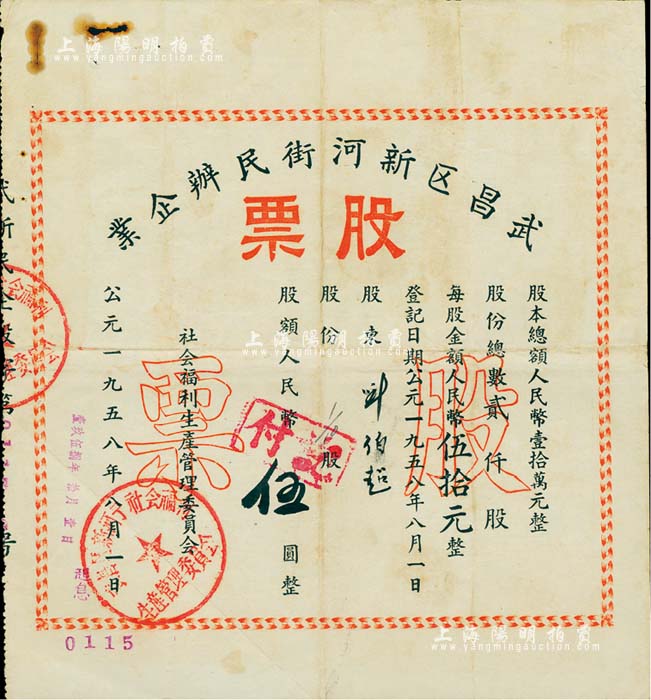 上海陽明拍賣
www.yangmingauction.com
武昌区新河街民辦企業
股票
股本總額人民幣壹拾萬元整
股份總數貳仟股
每股金額人民幣伍拾元整
登記日期公元一九五八年八月一日
股東 伯超
股份 股
股額人民幣伍圓整
社会福利生產管理委員会
公元一九五八年八月一日
股票
付
社会福利
生產管理委員会
0115
上海陽明拍賣
www.yangmingauction.com
上海陽明拍賣
www.yangmingauction.com